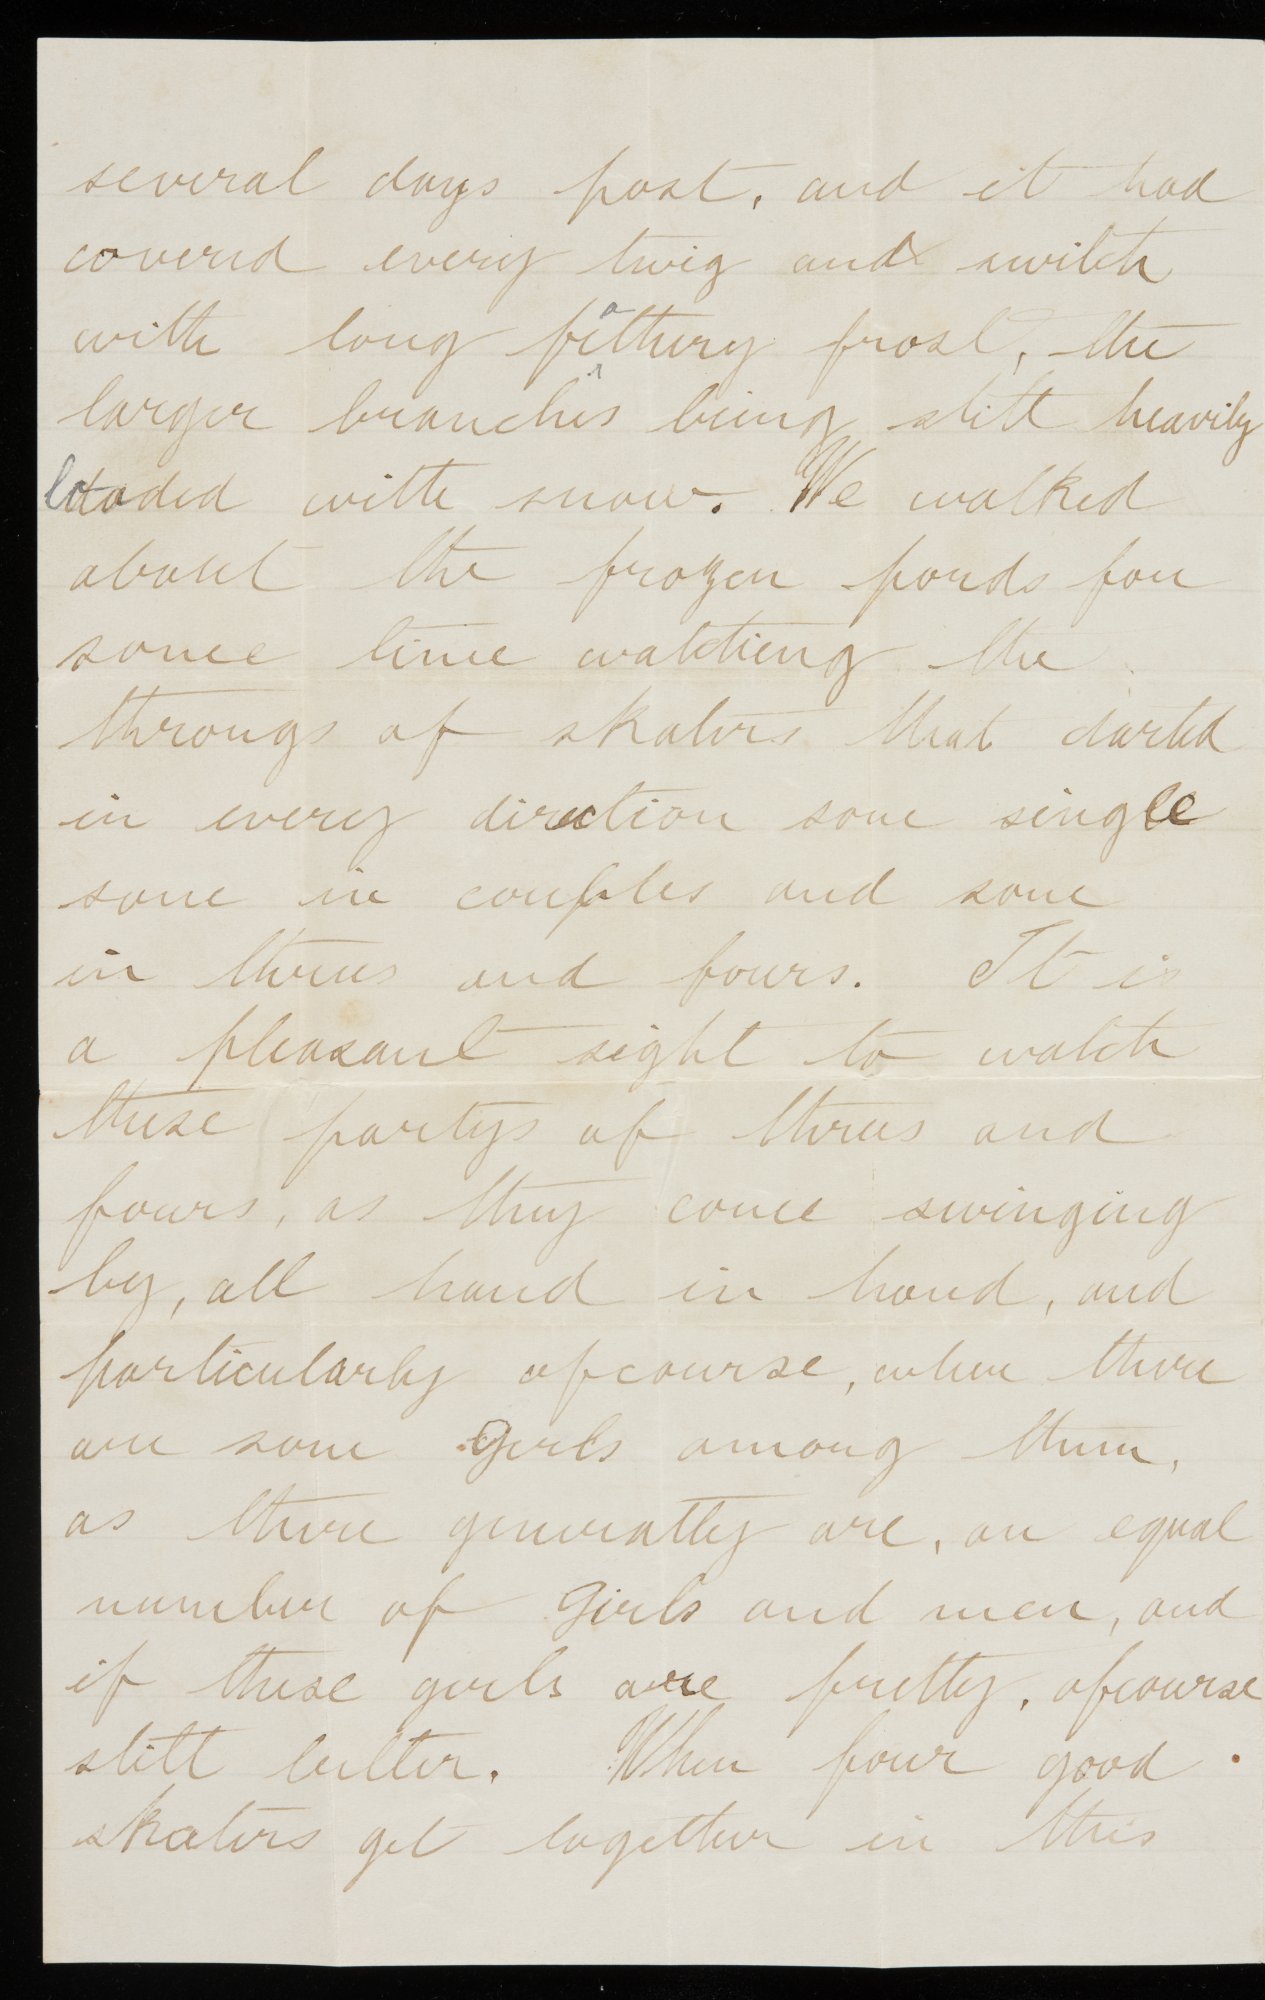 several days past, and it had
covered every twig and switch
with long feathery frost, the
larger branches being still heavily
loaded with snow. We walked
about the frozen ponds for
some time watching the
throngs of skaters that darted
in every direction some single
some in couples and some
in threes and fours. It is
a pleasant sight to watch
these partys of threes and
fours, as they come swinging
by, all hand in hand, and
particularly ofcourse, when there
are some girls among them,
as there generally are, an equal
number of girls and men, and
if these girls are pretty, ofcourse
still better. When four good
skaters get together in this